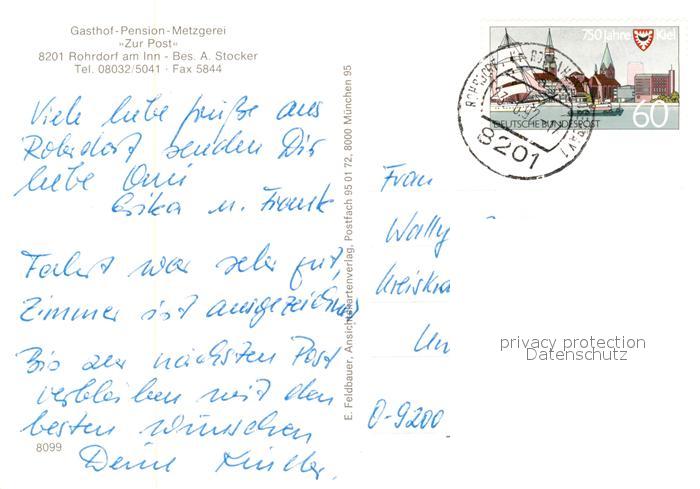 Gasthof-Pension-Metzgerei
»Zur Post«
8201 Rohrdorf am Inn - Bes. A. Stocker
Tel. 08032/5041 · Fax 5844
Viele liebe Grüße aus
Rohrdorf senden Dir
liebe Omi
Erika u. Frank
Fahrt war sehr gut,
Zimmer ist ausgezeichnet
Bis zur nächsten Post
verbleiben mit den
besten Wünschen
Deine Kinder.
8099
E. Feldbauer, Ansichtskartenverlag, Postfach 95 01 72, 8000 München 95
750 Jahre Kiel
DEUTSCHE BUNDESPOST
60
8201
Frau
Wally
Kreiskra
Un
O-9200
privacy protection
Datenschutz